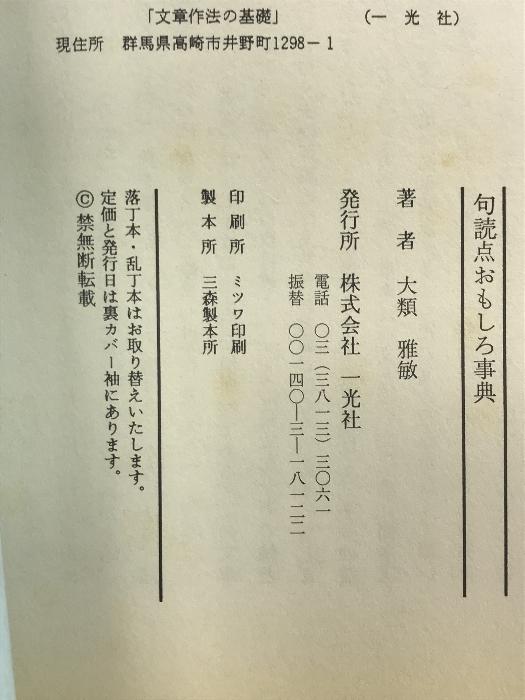 「文章作法の基礎」　（一光社）
現住所　群馬県高崎市井野町1298－1
句読点おもしろ事典
著者　大類　雅敏
発行所　株式会社　一光社
電話　〇三（三八一三）三〇六一
振替　〇〇一四〇―三―一八一二二
印刷所　ミツワ印刷
製本所　三森製本所
落丁本・乱丁本はお取り替えいたします。
定価と発行日は裏カバー袖にあります。
©禁無断転載